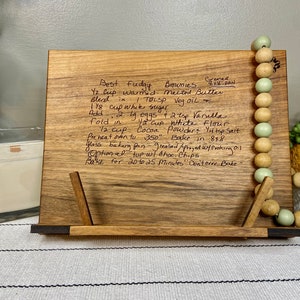 Best Fudgy Brownies
½ Cup warmed melted Butter
Blend in 1 TBLSP Veg Oil
1 ⅛ cup white sugar
Add - 2 Lg eggs + 2 tsp Vanilla
Fold in ½ cup white Flour
½ cup Cocoa Powder + ¼ tsp Salt
Preheat oven to 350° Bake in 8x8
glass baking pan - greased/sprayed w/cooking oil
top w/ Choc. Chips
Bake for 20 to 25 minutes